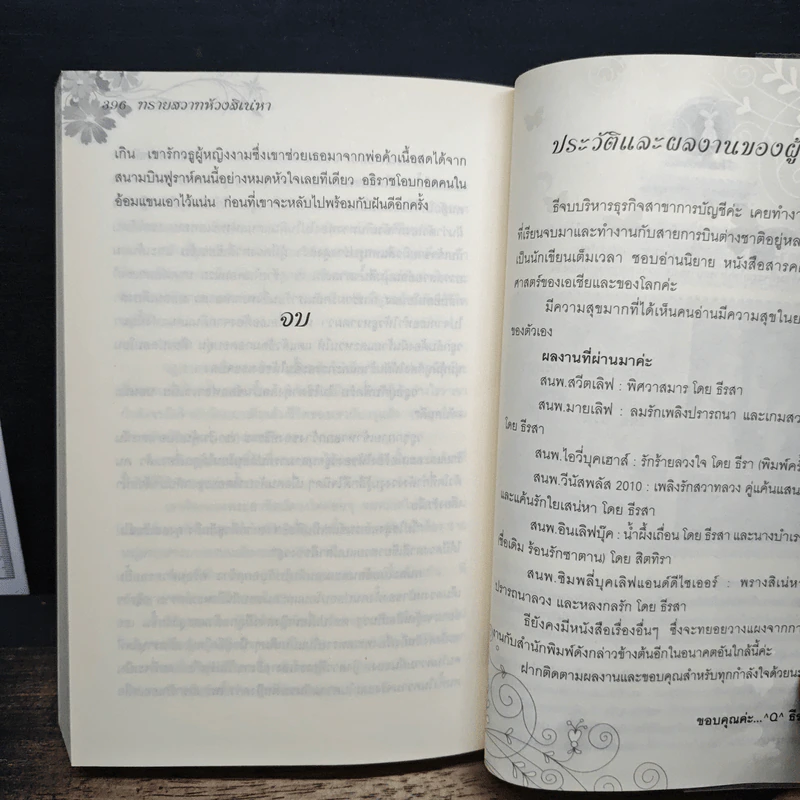 396 ทรายสวาทห้วงสิเน่หา
เกิน เขารักวธูผู้หญิงงามซึ่งเขาช่วยเธอมาจากพ่อค้าเนื้อสดได้จาก
สนามบินฟูราห์คนนี้อย่างหมดหัวใจเลยทีเดียว อธิราชโอบกอดคนใน
อ้อมแขนเอาไว้แน่น ก่อนที่เขาจะหลับไปพร้อมกับฝันดีอีกครั้ง
จบ
ประวัติและผลงานของผู้
ธีจบบริหารธุรกิจสาขาการบัญชีค่ะ เคยทำงา
ที่เรียนจบมาและทำงานกับสายการบินต่างชาติอยู่หล
เป็นนักเขียนเต็มเวลา ชอบอ่านนิยาย หนังสือสารคด
ศาสตร์ของเอเชียและของโลกค่ะ
มีความสุขมากที่ได้เห็นคนอ่านมีความสุขในย
ของตัวเอง
ผลงานที่ผ่านมาค่ะ
สนพ.สวีตเลิฟ : พิศวาสมาร โดย ธีรสา
สนพ.มายเลิฟ : ลมรักเพลิงปรารถนา และเกมสว
โดย ธีรสา
สนพ.ไอวี่บุคเฮาส์ : รักร้ายลวงใจ โดย ธีรา (พิมพ์ครั้
สนพ.วีนัสพลัส 2010 : เพลิงรักสวาทลวง คู่แค้นแสน
และแค้นรักใยเสน่หา โดย ธีรสา
สนพ.อินเลิฟบุ๊ค : น้ำผึ้งเถื่อน โดย ธีรสา และนางบำเร
(ชื่อเดิม ร้อนรักซาตาน) โดย สิตทิรา
สนพ.ซิมพลี่บุคเลิฟแอนด์ดีไซเออร์ : พรางสิเน่ห
ปรารถนาลวง และหลงกลรัก โดย ธีรสา
ธียังคงมีหนังสือเรื่องอื่นๆ ซึ่งจะทยอยวางแผงจากกา
งานกับสำนักพิมพ์ดังกล่าวข้างต้นอีกในอนาคตอันใกล้นี้ค่ะ
ฝากติดตามผลงานและขอบคุณสำหรับทุกกำลังใจด้วยนะ
ขอบคุณค่ะ...^Q^ ธีร